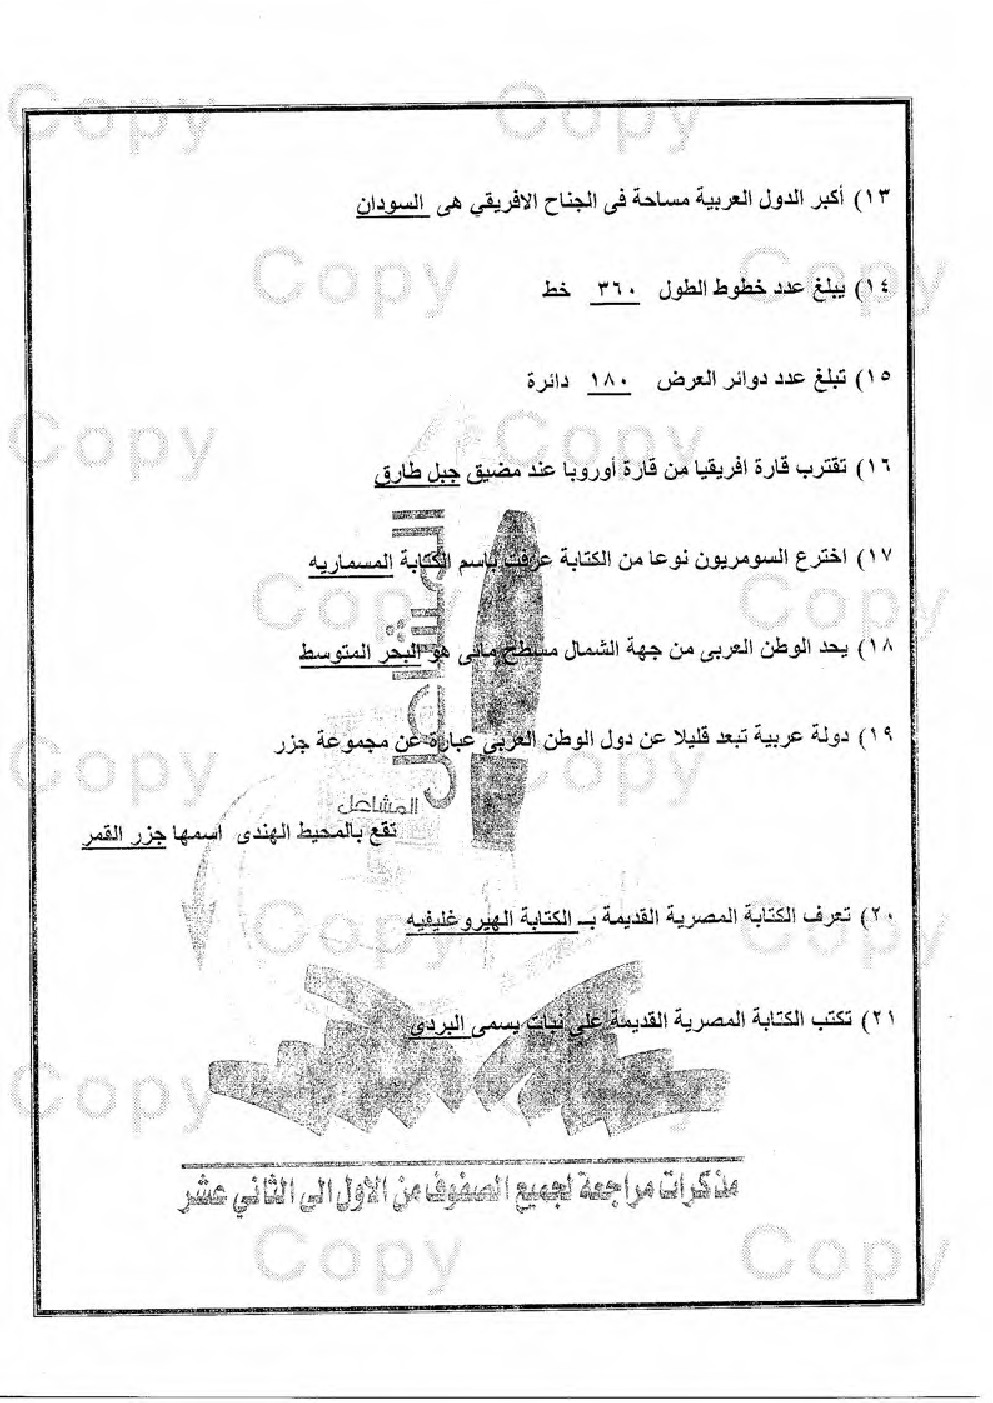 Copy Copy
١٣) أكبر الدول العربية مساحة فى الجناح الافريقي هى السودان
Copy Copy
١٤) يبلغ عدد خطوط الطول ٣٦٠ خط
١٥) تبلغ عدد دوائر العرض ١٨٠ دائرة
Copy Copy
١٦) تقترب قارة افريقيا من قارة أوروبا عند مضيق جبل طارق
١٧) اخترع السومريون نوعا من الكتابة عرفت باسم الكتابة المسماريه
Copy Copy
١٨) يحد الوطن العربى من جهة الشمال مسطح مائى هو البحر المتوسط
المشاعل
١٩) دولة عربية تبعد قليلا عن دول الوطن العربى عبارة عن مجموعة جزر
Copy Copy
المشاعل
تقع بالمحيط الهندى اسمها جزر القمر
٢٠) تعرف الكتابة المصرية القديمة بـ الكتابة الهيروغليفيه
Copy Copy
٢١) تكتب الكتابة المصرية القديمة على نبات يسمى البردى
Copy Copy
مذكرات مراجعة لجميع الصفوف من الاول الى الثاني عشر
Copy Copy